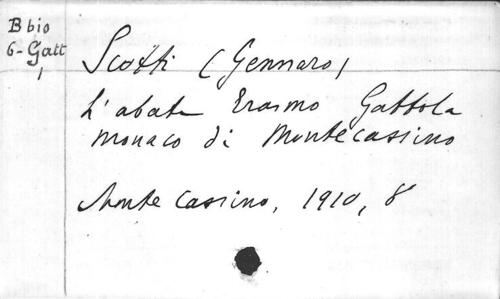 B bio
6-Gatt
1
Scotti (Gennaro)
L'abate Erasmo Gattola
monaco di Montecassino
Monte Cassino, 1910, 8°